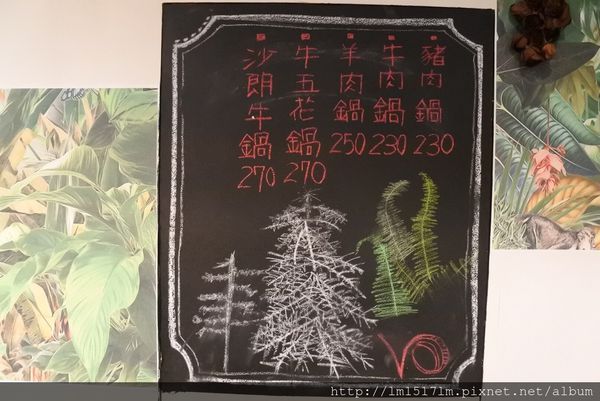 豬肉鍋 230
牛肉鍋 230
羊肉鍋 250
牛五花鍋 270
沙朗牛鍋 270
VO
http://lm1517lm.pixnet.net/album